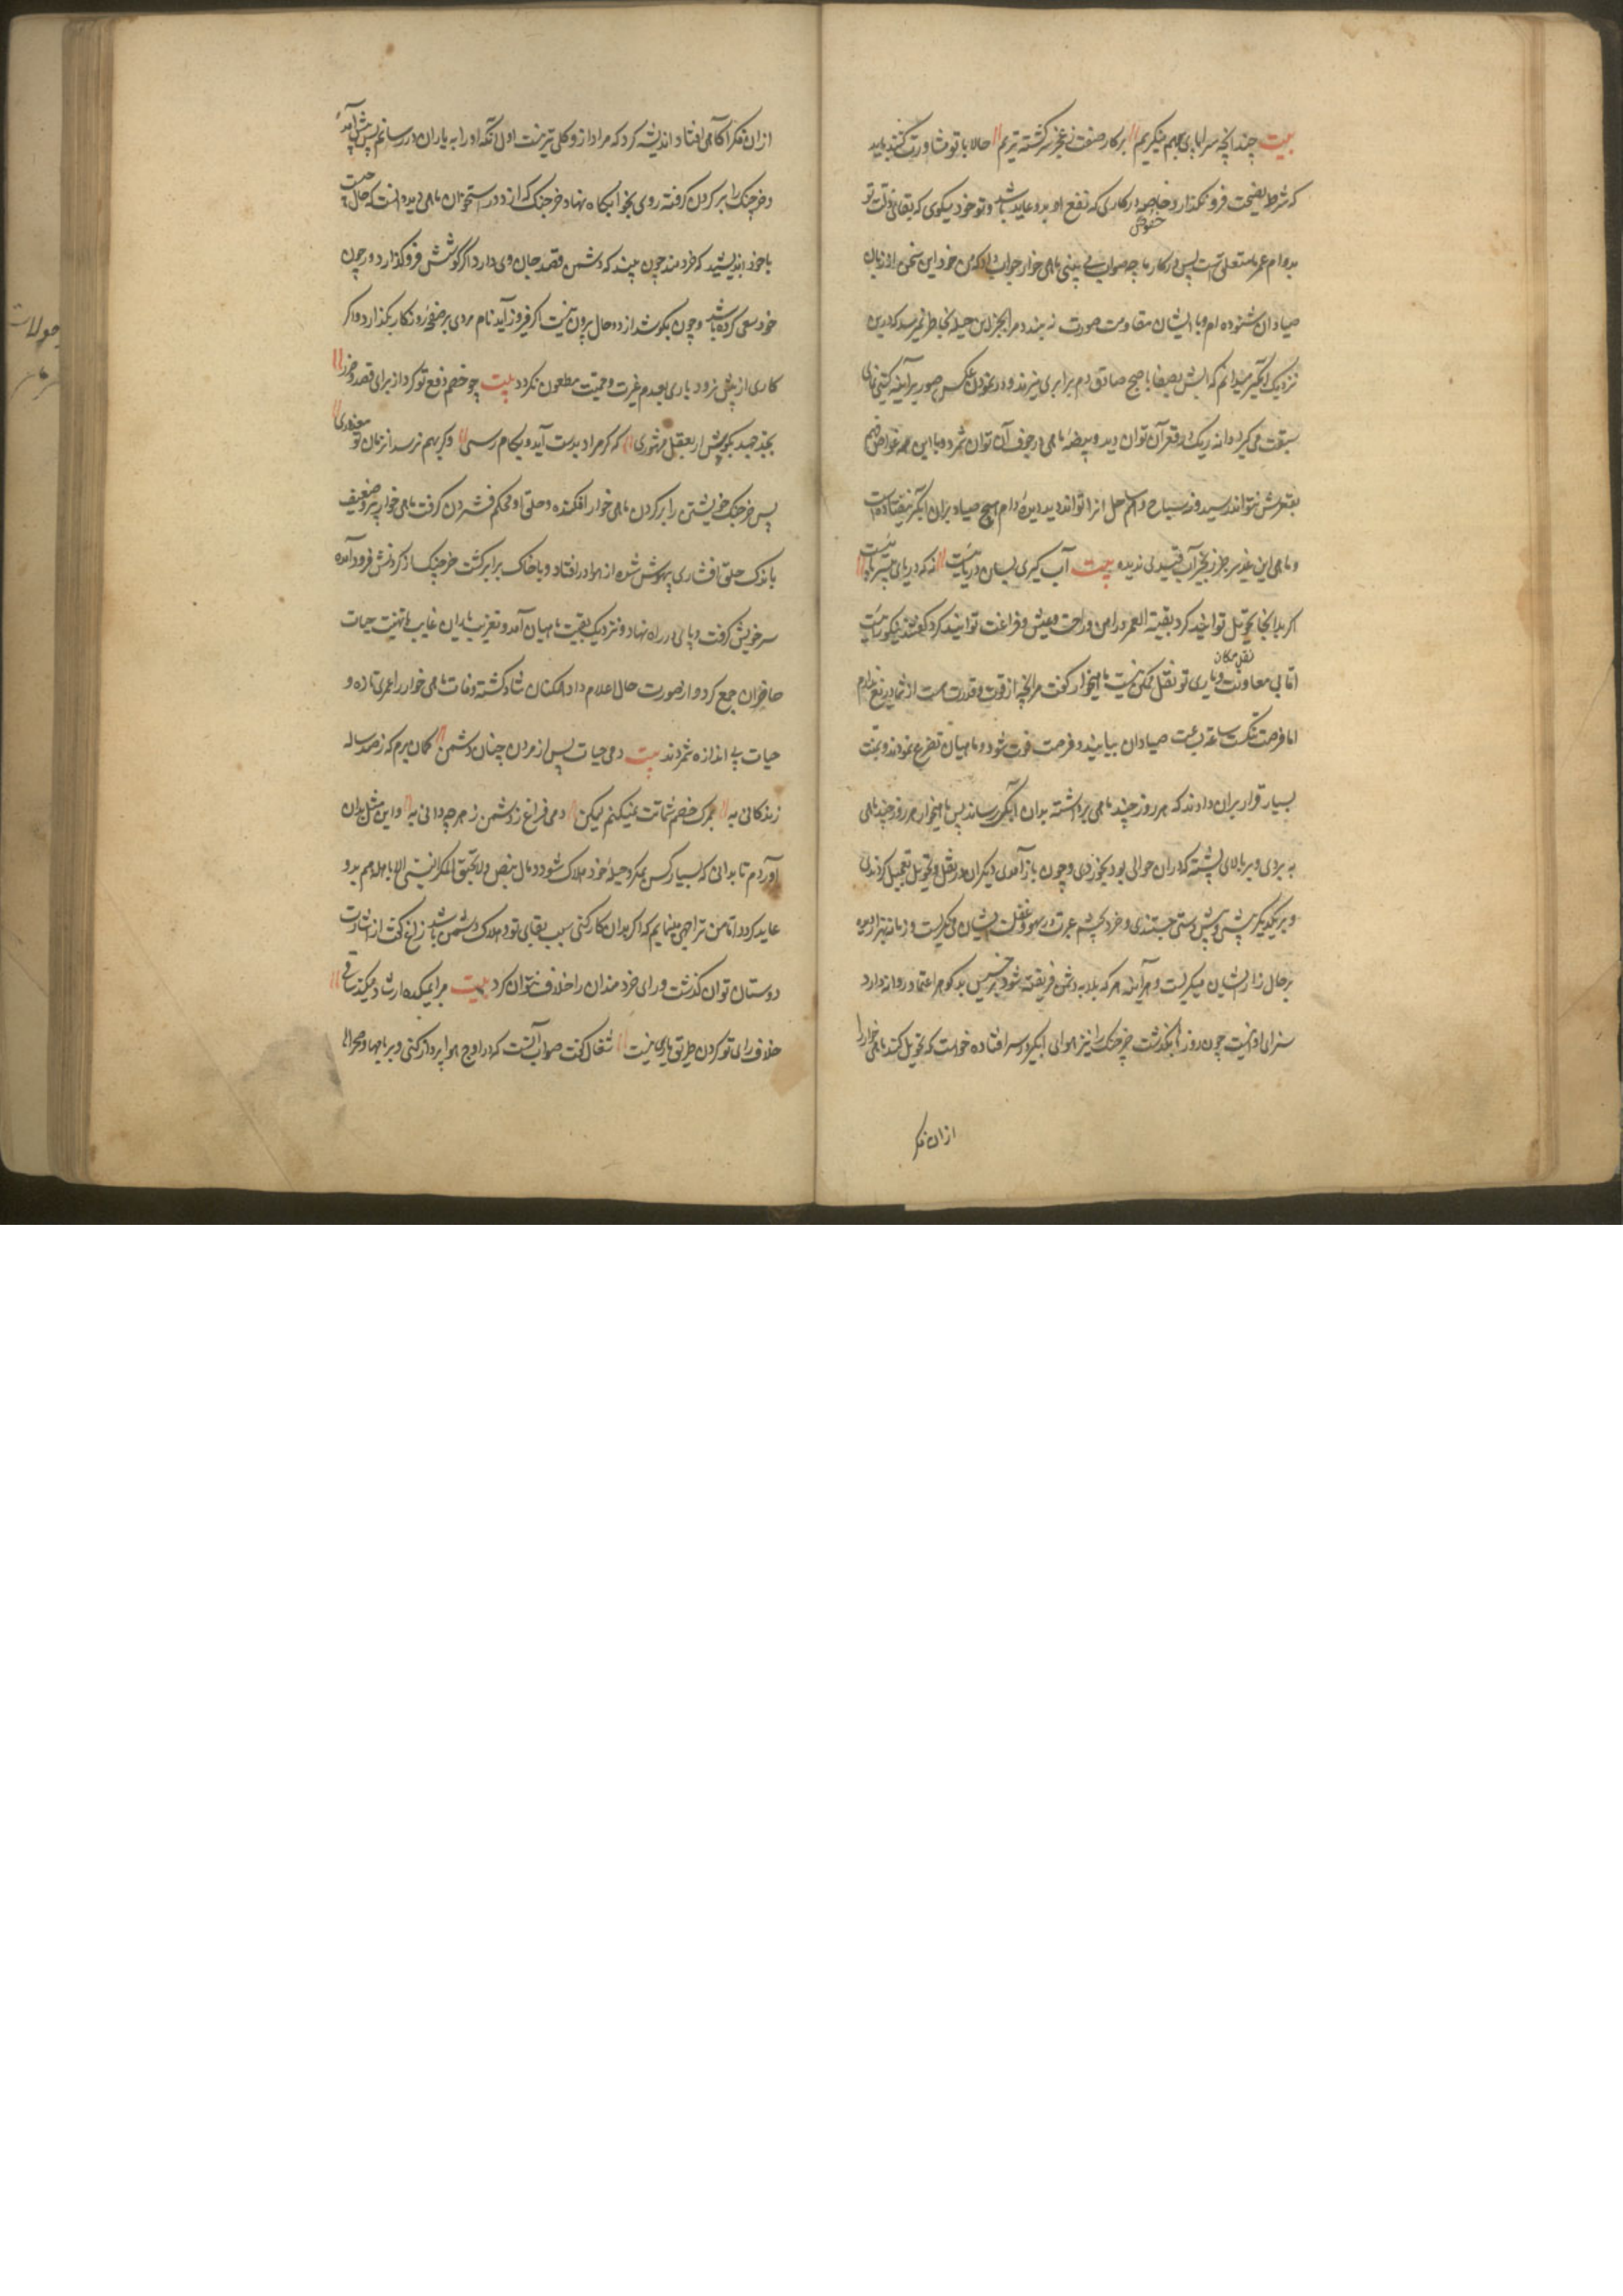 بیت چندانچه سراپای بهم مینگریم برکار صفت ز عجز سرگشته تریم حالا با تو مشاورت میکنند باید
که شرط نصیحت فرو نگذارد خاصه در کاری که نفع او بدو عاید باشد و تو خود میکوی که بقای ذات تو
خصوص
بدوام عمر ما متعلق است پس در کار ما چه صواب می بینی ماهی خوار جواب داد که من خود این سخن از زبان
صیادان شنوده ام و با ایشان مقاومت صورت نه بندد و مرا بجز این حیله بخاطر نمیرسد که درین
نزدیکی آبگیر میدانم که آبش بصفا با صبح صادق دم برابری میزند و در نمودن عکس صور بر آینه کیتی نمای
سبقت می کیرد دانه ریک در قعر آن توان دید و بیضه ماهی در جوف آن توان شمرد و با این همه غواص فهم
بقعرش نتواند رسید و نه سیاح وهم ساحل انرا تواند دید و دیده دام هیچ صیاد بران آبگیر نیفتاده است
و ماهی این غدیر جز زنجیر آب قیدی ندیده بیت آب کیری بسان دریائیست نه که دریای بی سر و پائیست
اکر بدانجا تحویل توانید کرد بقیة العمر در امن و راحت و عیش و فراغت توانید کرد گفتند نیکو رائیست
نقل مکان
اما بی معاونت و یاری تو نقل ممکن نیست ماهیخوار کفت مرا آنچه از قوت و قدرت هست از شما دریغ ندارم
اما فرصت تنکست ساعة بساعت صیادان بیایند و فرصت فوت شود و ماهیان تضرع نمودند و بمنت
بسیار قرار بران دادند که هر روز چند ماهی برداشته بدان آبگیر رساند پس ماهیخوار هر روز چند ماهی
به بردی و بر بالای پشته که دران حوالی بود بخوردی و چون باز آمدی دیکران در نقل و تحویل تعجیل کردندی
و بر یکدیکر پیشی و بیش دستی جستندی و خرد بچشم عبرت در سهو و غفلت ایشان می نکریست و زمانه بهزار دیده
بر حال زار ایشان میکریست و هر آینه هر که بلابه دشمن فریفته شود و بر خسیس بد گوهر اعتماد روا دارد
سزای او اینست چون روزها بگذشت خرچنک را نیز هوای آبگیر در سر افتاده خواست که تحویل کند ماهی خوار را
ازان فکر
ازان فکر آکاهی افتاد اندیشه کرد که مرا از و کلی تر نیست اول آنکه او را به یاران در رسانم پس پیش آمد
و خرچنک را بر کردن کرفته روی بخوابگاه نهاد خرچنک که از دور استخوان ماهی دید دانست که حال چیست
با خود اندیشید که خردمند چون بیند که دشمن قصد جان وی دارد اگر کوشش فرو گذارد در خون
خود سعی کرده باشد و چون بکوشد از دو حال بیرون نیست اکر فیروز آید نام مردی بر صفحه روزکار بگذارد و اکر
کاری از پیش نرود باری بعدم غیرت و حمیت مطعون نکردد بیت چو خصم دفع تو کرد از برای قصد و ضرر
بجد و جهد بکوش ار بعقل مشهوری که کر مراد بدست آید و بکام رسی و کر بهم نرسد از زمان تو معذوری
پس خرچنک خویشتن را بر کردن ماهی خوار افکنده و حلق او محکم فشردن کرفت ماهی خوار پیر و ضعیف
باندک حلق افشاری بیهوش شده از هوا در افتاد و با خاک برابر کشت خرچنک از کردنش فرود آمده
سر خویش کرفت و پای در راه نهاد و نزدیک بقیت ماهیان آمد و تعزیت یاران غایب با تهنیت حیات
حاضران جمع کرد و از صورت حال اعلام داد همکنان شاد گشته وفات ماهی خوار را عمری تازه و
حیات بی اندازه شمردند بیت دمی حیات پس از مردن چنان دشمن کمان برم که ز صد ساله
زندکانی به بمرک خصم شماتت نمیکنم لیکن دمی فراغ ز دشمن ز هر چه دانی به و این مثل بدان
آوردم تا بدانی که بسیار کس بمکر و حیله خود هلاک شود و مال بنص ولا یحیق المکر السیئ الا باهله هم بدو
عاید کردد اما من ترا وجهی بنمایم که اکر بدان کار کنی سبب بقای تو و هلاک دشمن باشد زاغ کفت از اشارت
دوستان نتوان کذشت و رای خردمندان را خلاف نتوان کرد بیت مرا بمیکده ارشاد میکند ساقی
خلاف رای تو کردن طریق یاری نیست شغال کفت صواب آنست که در اوج هوا پرواز کنی و بر بامها و صحراها